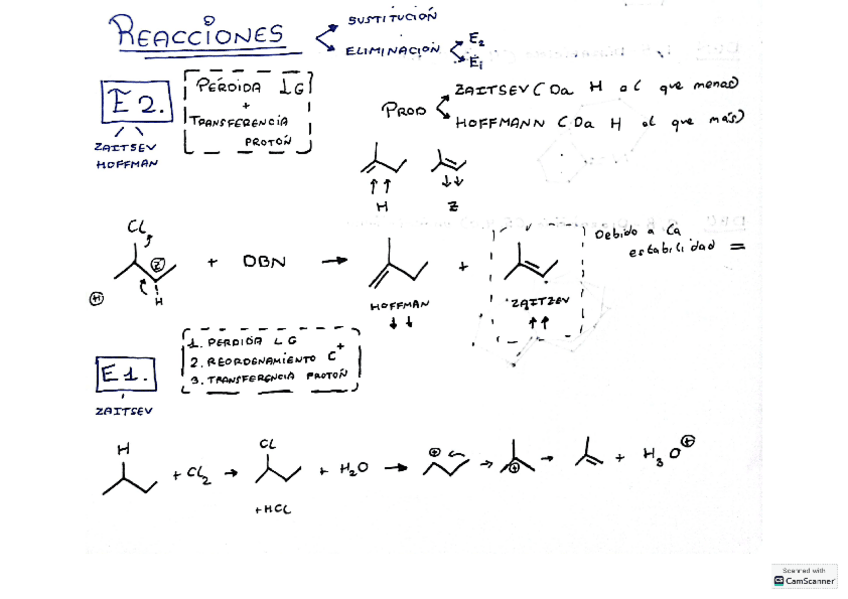 REACCIONES
SUSTITUCIÓN
ELIMINACIÓN
E2
E1
E2.
ZAITSEV
HOFFMAN
PÉRDIDA LG
+
TRANSFERENCIA
PROTÓN
PROD
ZAITSEV (Da H al que menos)
HOFFMANN (Da H al que más)
H
Z
Cl
Z
H
H
+ DBN
+
HOFFMAN
ZAITZEV
Debido a la
estabilidad =
E1.
ZAITSEV
1. PERDIDA LG
2. REORDENAMIENTO C+
3. TRANSFERENCIA PROTÓN
H
+ Cl2
Cl
+HCL
+ H2O
+
+
+ H3O+
Scanned with
CS CamScanner